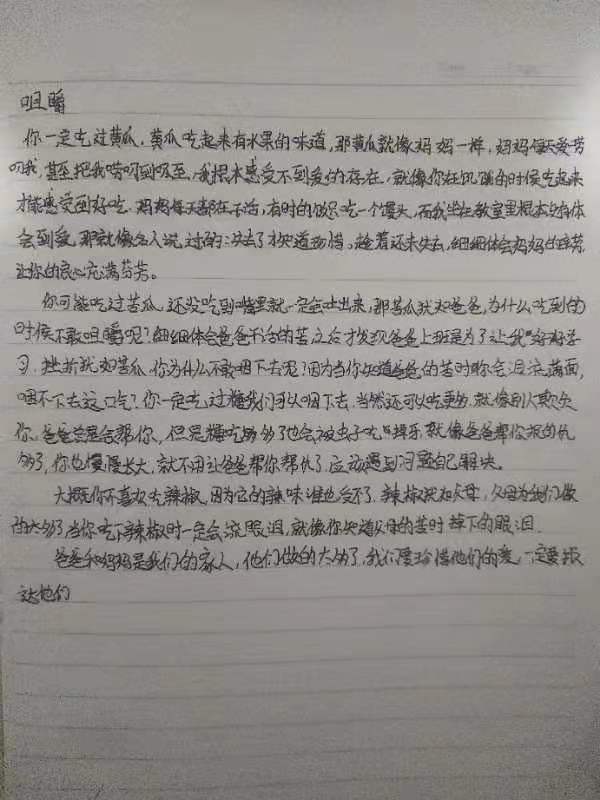 咀嚼
你一定吃过黄瓜,黄瓜吃起来有水果的味道,那黄瓜就像妈妈一样,妈妈每天爱劳
叨我,甚至把我唠叨到吸至,我根本感受不到爱的存在,就像你在饥饿的时候吃起来
才能感受到好吃.妈妈每天都在干活,有时的做只吃一个馒头,而我坐在教室里根本没有体
会到爱,那就像名人说,过的:失去了才知道珍惜,趁着还未失去,细细体会妈妈的辛劳
让你的良心充满芬芳。
你可能吃过苦瓜,还没吃到嘴里就一定会吐出来,那苦瓜犹如爸爸,为什么吃到的
时候不敢咀嚼呢?细细体会爸爸干活的苦之后才发现爸爸上班是为了让我好好学
习.挫折犹如苦瓜,你为什么不敢咽下去呢?因为当你知道爸爸的苦时你会泪流满面,
咽不下去这口气?你一定吃过糖我们可以咽下去,当然还可以吃更多,就像别人欺负
你,爸爸总是会帮你,但是糖吃多了也会被虫子吃掉牙,就像爸爸帮你报的仇
多了,你也慢慢长大,就不用让爸爸帮你报仇了,应该遇到问题自己解决。
大概你不喜欢吃辣椒,因为它的辣味谁也受不了.辣椒犹如父母,父母为我们做
的太多了,当你吃下辣椒时一定会流眼泪,就像你知道父母的苦时掉下的眼泪.
爸爸和妈妈是我们的家人,他们做的太多了,我们要珍惜他们的爱,一定要报
达他们